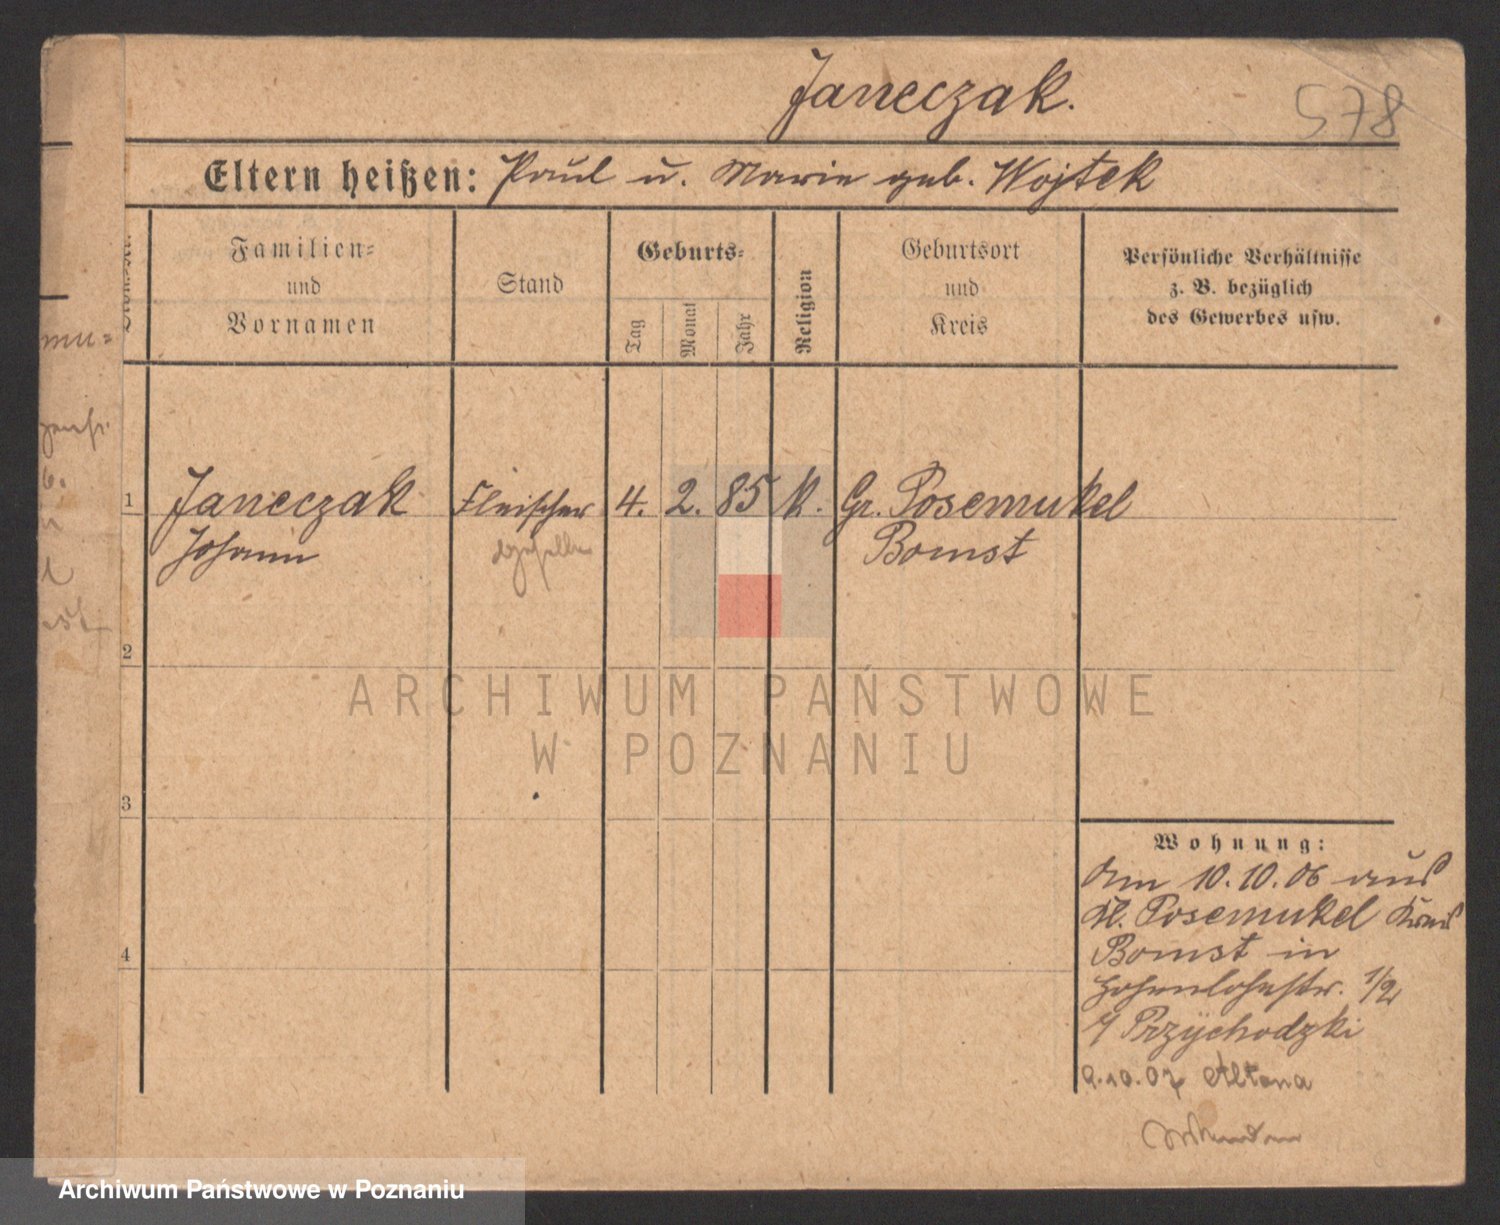 Janeczak.
578
Eltern heißen: Paul u. Marie geb. Wojtek
Familien=
und
Vornamen
Stand
Geburts=
Tag
Monat
Jahr
Religion
Geburtsort
und
Kreis
Persönliche Verhältnisse
z. B. bezüglich
des Gewerbes usw.
mu=
1 Janeczak Fleischer 4. 2. 85 k. Gr. Posemukel
Johann geselle Bomst
2
3
4
Wohnung:
Am 10.10.06 aus
Kl. Posemukel Kreis
Bomst in
Hohenlohestr. 1/2
Przychodzki
9.10.07 Altona
ARCHIWUM PAŃSTWOWE
W POZNANIU
Archiwum Państwowe w Poznaniu